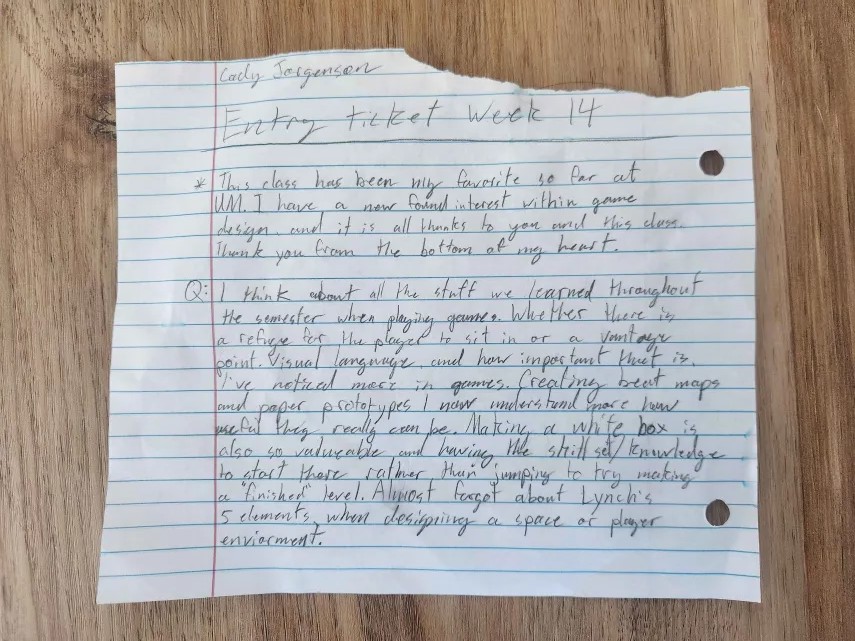 Cady Jorgenson
Entry Ticket Week 14
* This class has been my favorite so far at
UM. I have a new found interest within game
design, and it is all thanks to you and this class.
Thank you from the bottom of my heart.
Q: I think about all the stuff we learned throughout
the semester when playing games. Whether there is
a refuge for the player to sit in or a vantage
point. Visual language, and how important that is,
I've noticed more in games. Creating beat maps
and paper prototypes I now understand more how
useful they really can be. Making a white box is
also so valueable and having the skill set/knowledge
to start there rather than jumping to try making
a "finished" level. Almost forgot about Lynch's
5 elements, when designing a space or player
enviorment.